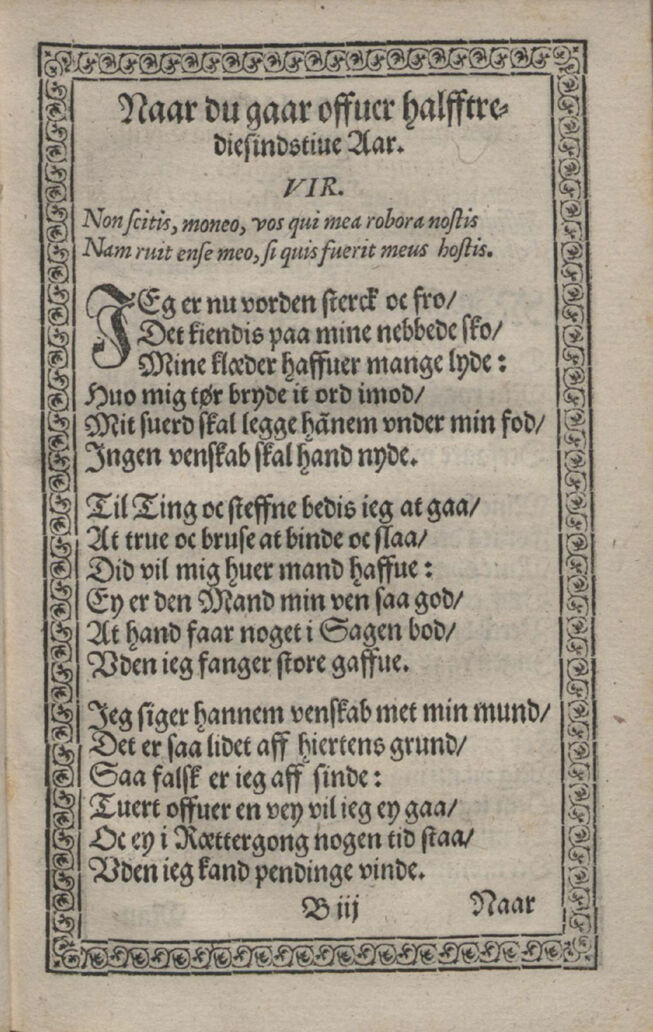 Naar du gaar offuer halfftre-
diesindstiue Aar.
VIR.
Non scitis, moneo, vos qui mea robora nostis
Nam ruit ense meo, si quis fuerit meus hostis.
JEg er nu vorden sterck oc fro/
Det kiendis paa mine nebbede sko/
Mine klæder haffuer mange lyde:
Huo mig tør bryde it ord imod/
Mit suerd skal legge hãnem vnder min fod/
Jngen venskab skal hand nyde.
Til Ting oc steffne bedis ieg at gaa/
At true oc bruse at binde oc slaa/
Did vil mig huer mand haffue:
Ey er den Mand min ven saa god/
At hand faar noget i Sagen bod/
Vden ieg fanger store gaffue.
Jeg siger hannem venskab met min mund/
Det er saa lidet aff hiertens grund/
Saa falsk er ieg aff sinde:
Tuert offuer en vey vil ieg ey gaa/
Oc ey i Rættergong nogen tid staa/
Vden ieg kand pendinge vinde.
B iij
Naar